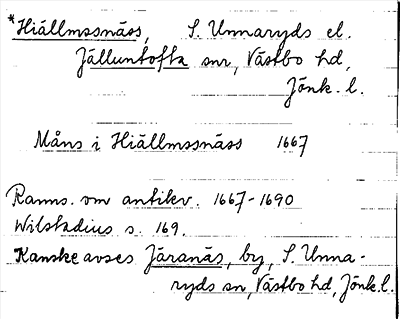 *Hiällmssnäss, S. Unnaryds el.
Jälluntofta snr, Västbo hd,
Jönk. l.
Måns i Hiällmssnäss 1667
Ranns. om antikv. 1667-1690
Wilstadius s. 169.
Kanske avses Järanäs, by, S. Unna-
ryds sn, Västbo hd, Jönk. l.